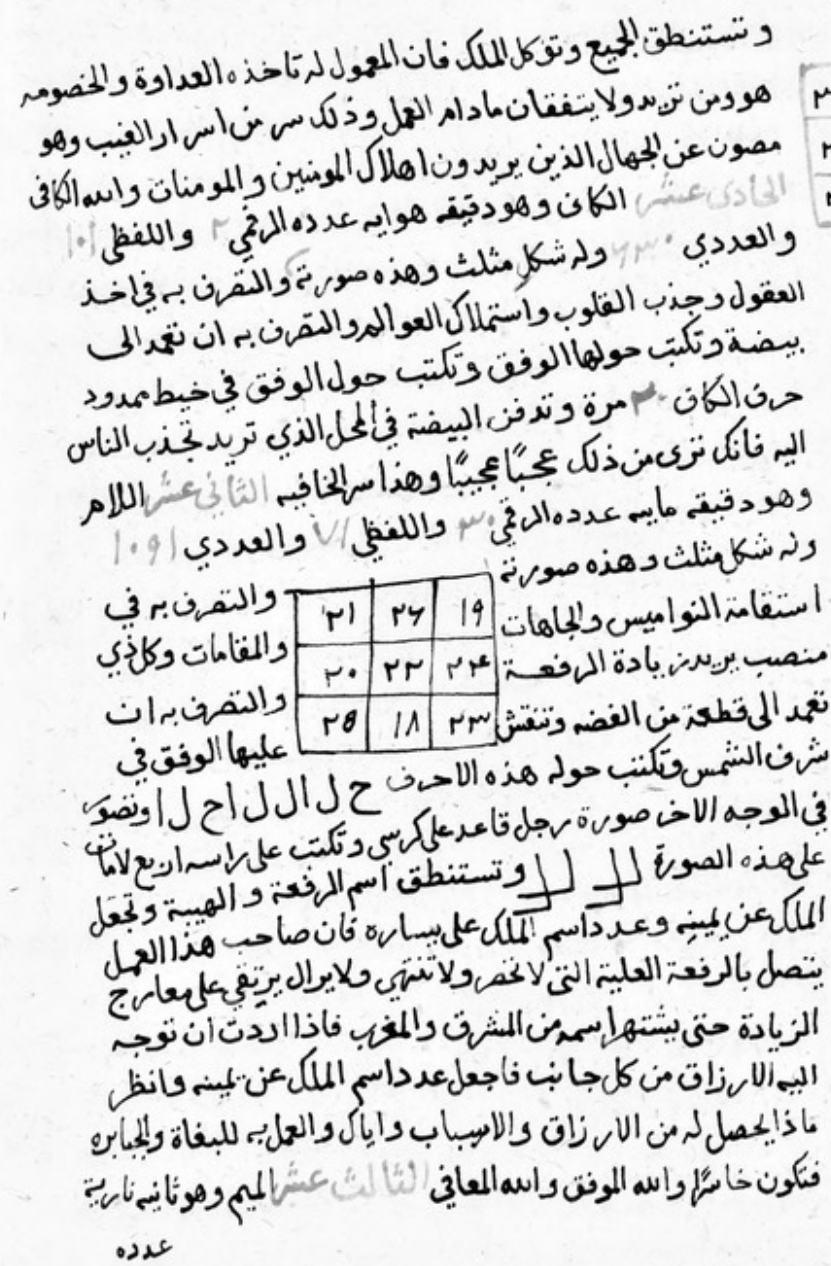 وتستنطق الجميع وتؤكل الملك فان المعمول له تاخذه العداوة والخصومه
هو ومن تريد ولا يتفقان مادام العمل وذلك سر من اسرار الغيب وهو
مصون عن الجهال الذين يريدون اهلاك المومنين والمومنات والله الكافي
الحادي عشر الكاف وهو دقيقه هوايه عدده الرقمي ٢ واللفظي ١٠١
والعددي ٦٣٠ وله شكل مثلث وهذه صورته والتصرف به في اخذ
العقول وجذب القلوب واستملاك العوالم والتصرف به ان تعمد الى
بيضة وتكتب حولها الوفق وتكتب حول الوفق في خيط ممدود
حرف الكاف ٢٠ مرة وتدفن البيضة في المحل الذي تريد تجذب الناس
اليه فانك ترى من ذلك عجبًا عجيبًا وهذا سر الخافيه الثاني عشر اللام
وهو دقيقه مايه عدده الرقمي ٣٠ واللفظي ٧١ والعددي ١٠٩١
وله شكل مثلث وهذه صورته
٢١ ٢٦ ١٩
٢٠ ٢٢ ٢٤
٢٥ ١٨ ٢٣
والتصرف به في
استقامة النواميس والجاهات
والمقامات وكل ذي
منصب يريد زيادة الرفعة
والتصرف به ان
تعمد الى قطعة من الفضه وتنقش
عليها الوفق في
شرف الشمس وتكتب حوله هذه الاحرف ح ل ا ل ل ا ح ل ا وتصور
في الوجه الاخر صورة رجل قاعد على كرسي وتكتب على راسه اربع لامات
على هذه الصورة وتستنطق اسم الرفعة والهيبة وتجعل
الملك عن يمينه وعدد اسم الملك على يساره فان صاحب هذا العمل
يتصل بالرفعة العلية التي لا تحصر ولا تنتهي ولا يزال يرتقي على معارج
الزيادة حتى يشتهر اسمه من المشرق والمغرب فاذا اردت ان توجه
اليه الارزاق من كل جانب فاجعل عدد اسم الملك عن يمينه وانظر
ماذا يحصل له من الارزاق والاسباب واياك والعمل به للبغاة والجبابره
فتكون خاسرًا والله الموفق والله المعافي الثالث عشر الميم وهو ثانيه نارية
عدده